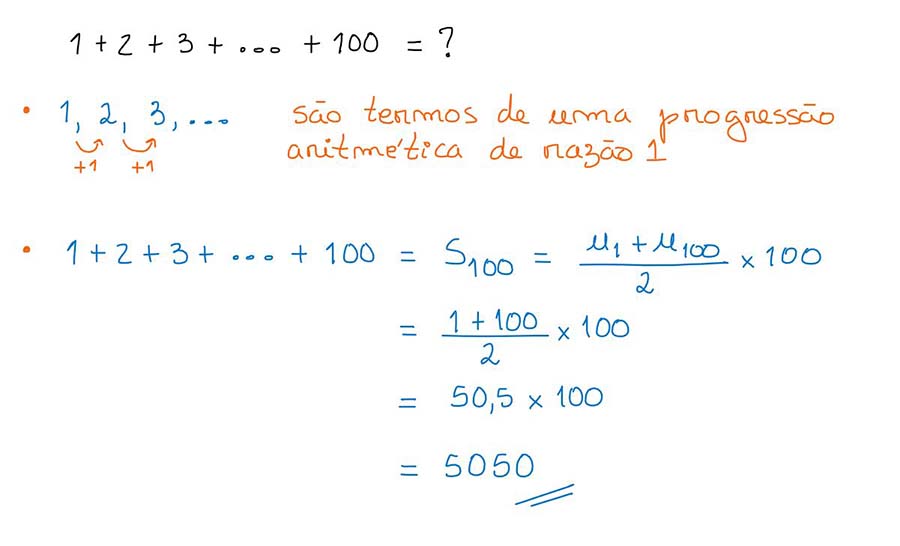 1 + 2 + 3 + ... + 100 = ?
• 1, 2, 3, ... são termos de uma progressão
+1 +1 aritmética de razão 1
• 1 + 2 + 3 + ... + 100 = S₁₀₀ = (u₁ + u₁₀₀)/2 × 100
= (1 + 100)/2 × 100
= 50,5 × 100
= 5050